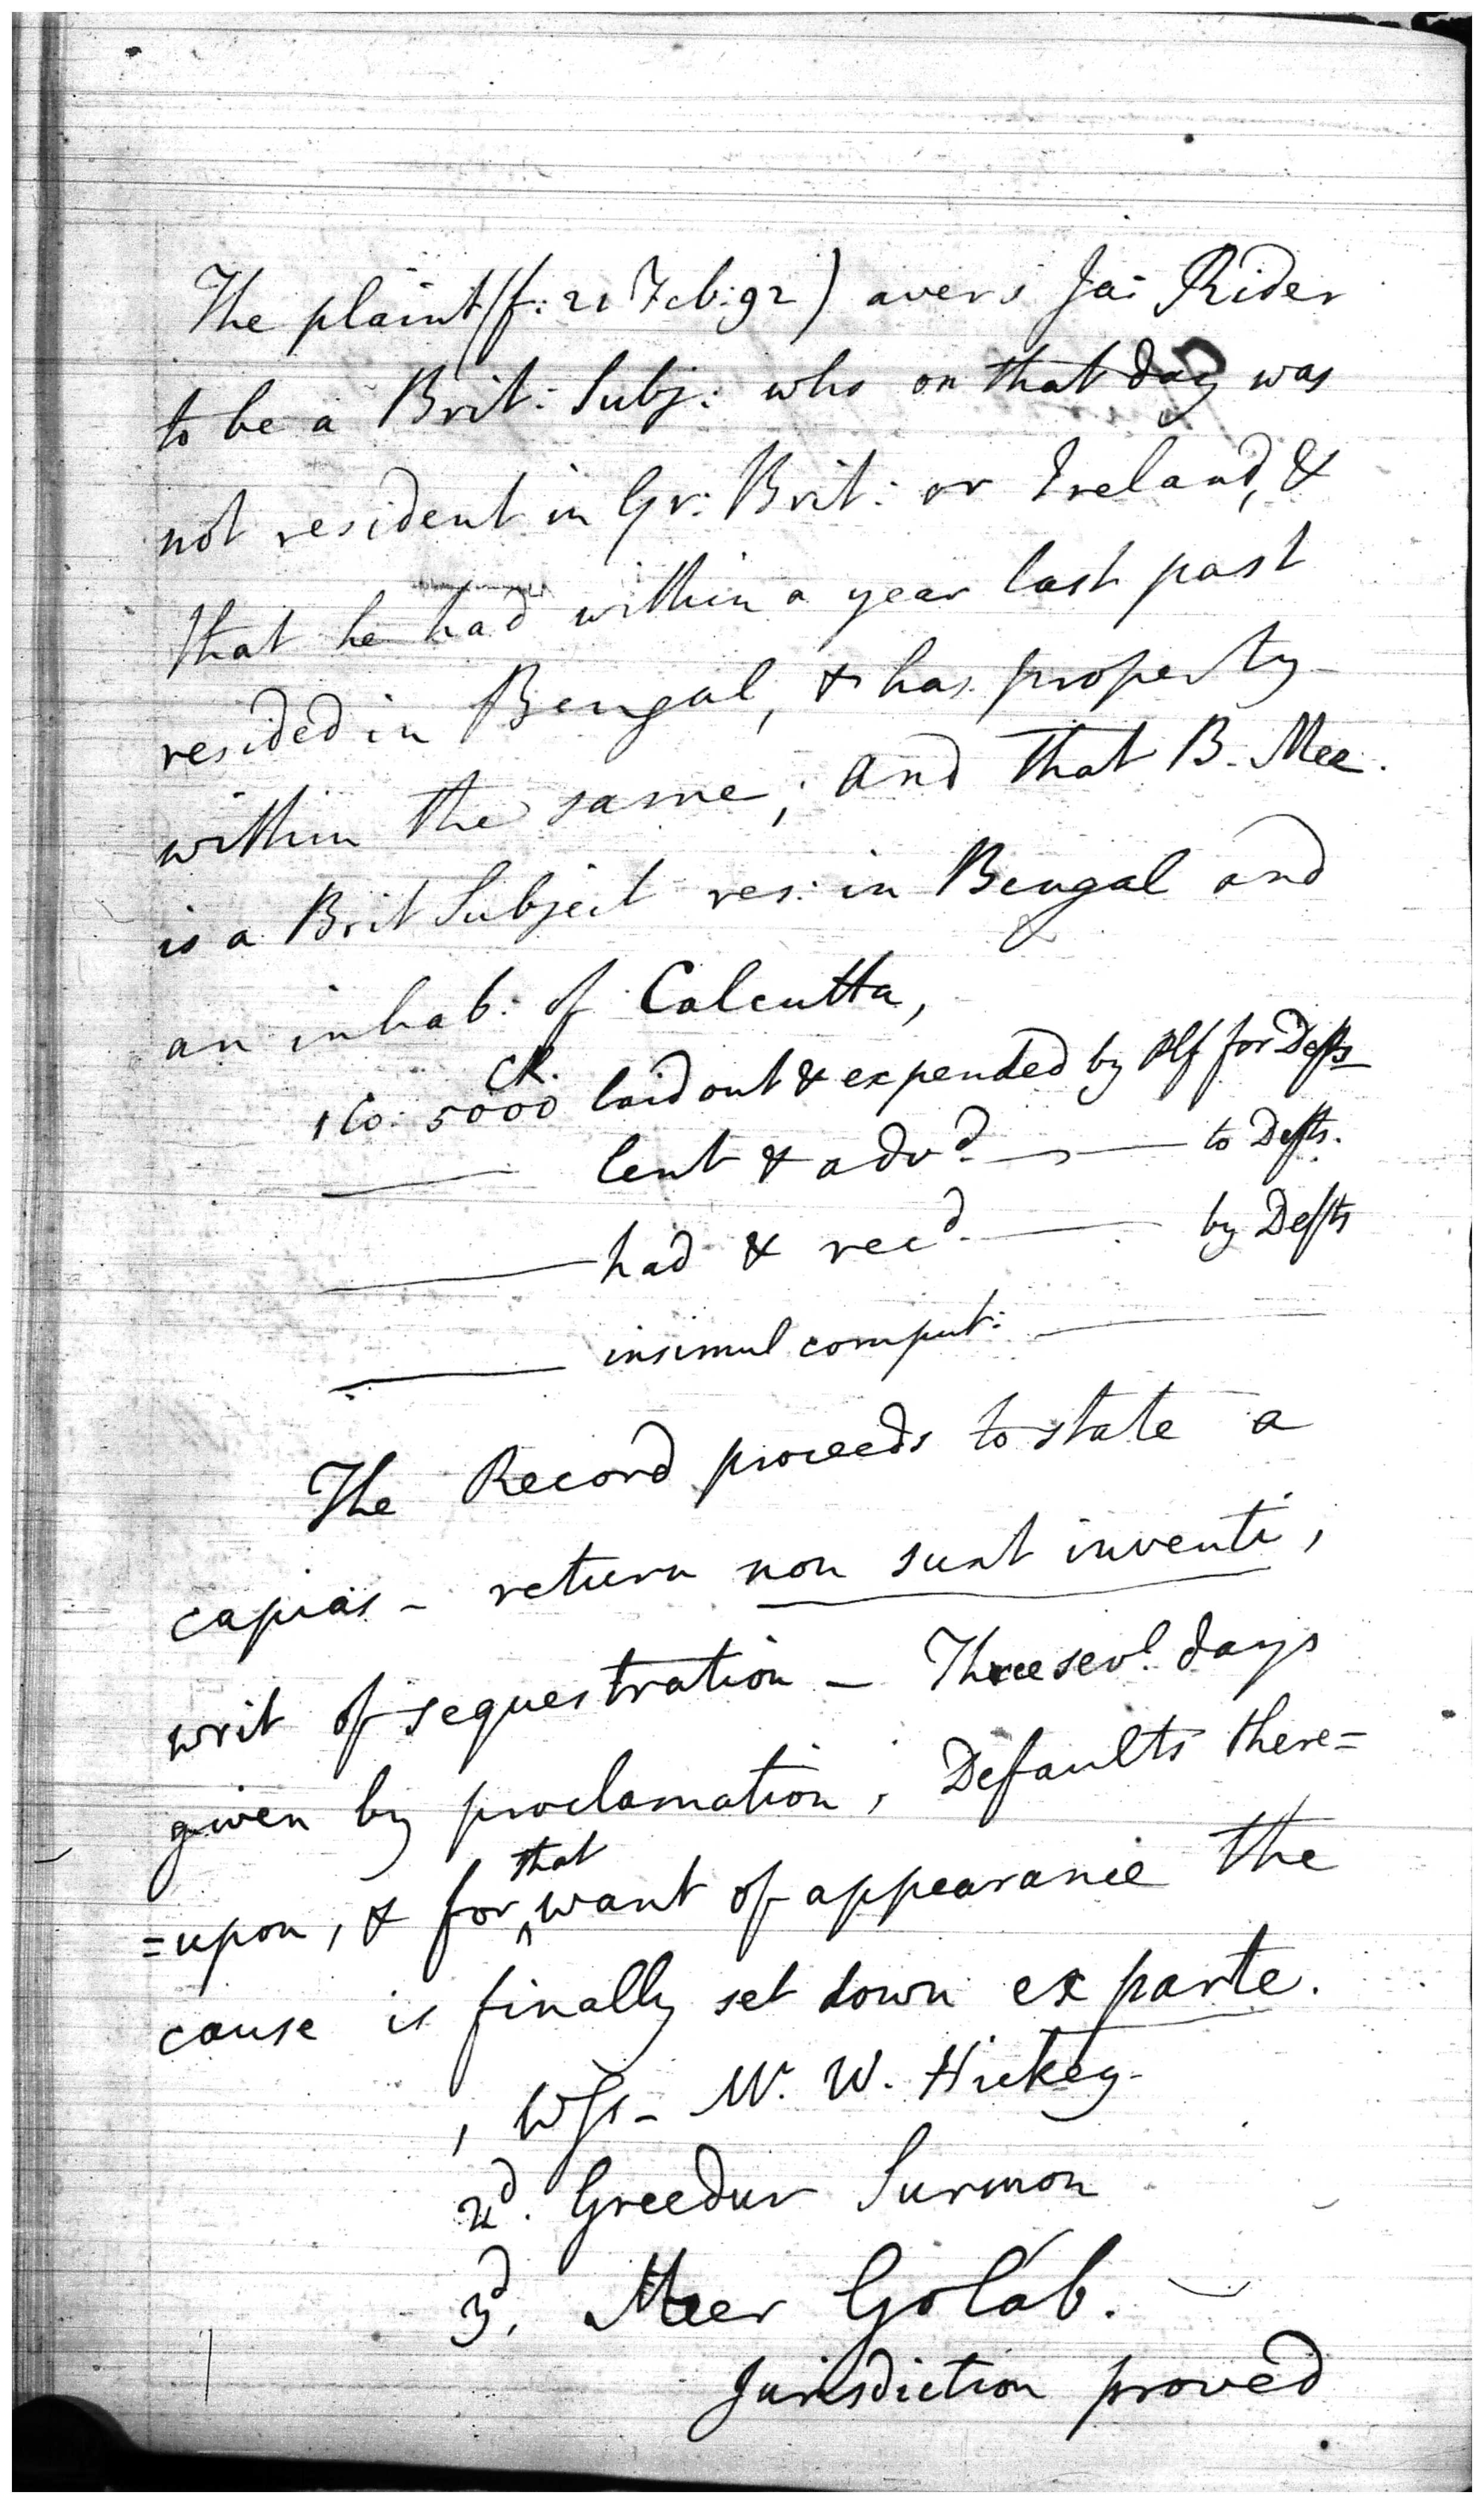 The plaint (f: 21 Feb: 92) avers Ja: Rider
to be a Brit: Subj: who on that day was
not resident in Gr: Brit: or Ireland, &
that he had within a year last past
resided in Bengal, & has property
within the same; and that B. Mee.
is a Brit Subject res: in Bengal and
an inhab: of Calcutta,
CR.
1 Co: 5000 laid out & expended by Plf for Defts
lent & advd. to Defts.
had & recd. by Defts
insimul comput:
The Record proceeds to state a
capias - return non sunt inventi,
writ of sequestration - Three sevl. days
given by proclamation, Defaults there=
that
=upon, & for ^ want of appearance the
cause is finally set down ex parte.
1 Wss - Mr. W. Hickey.
2d. Greedur Surmon
3d. Meer Golab.
Jurisdiction proved